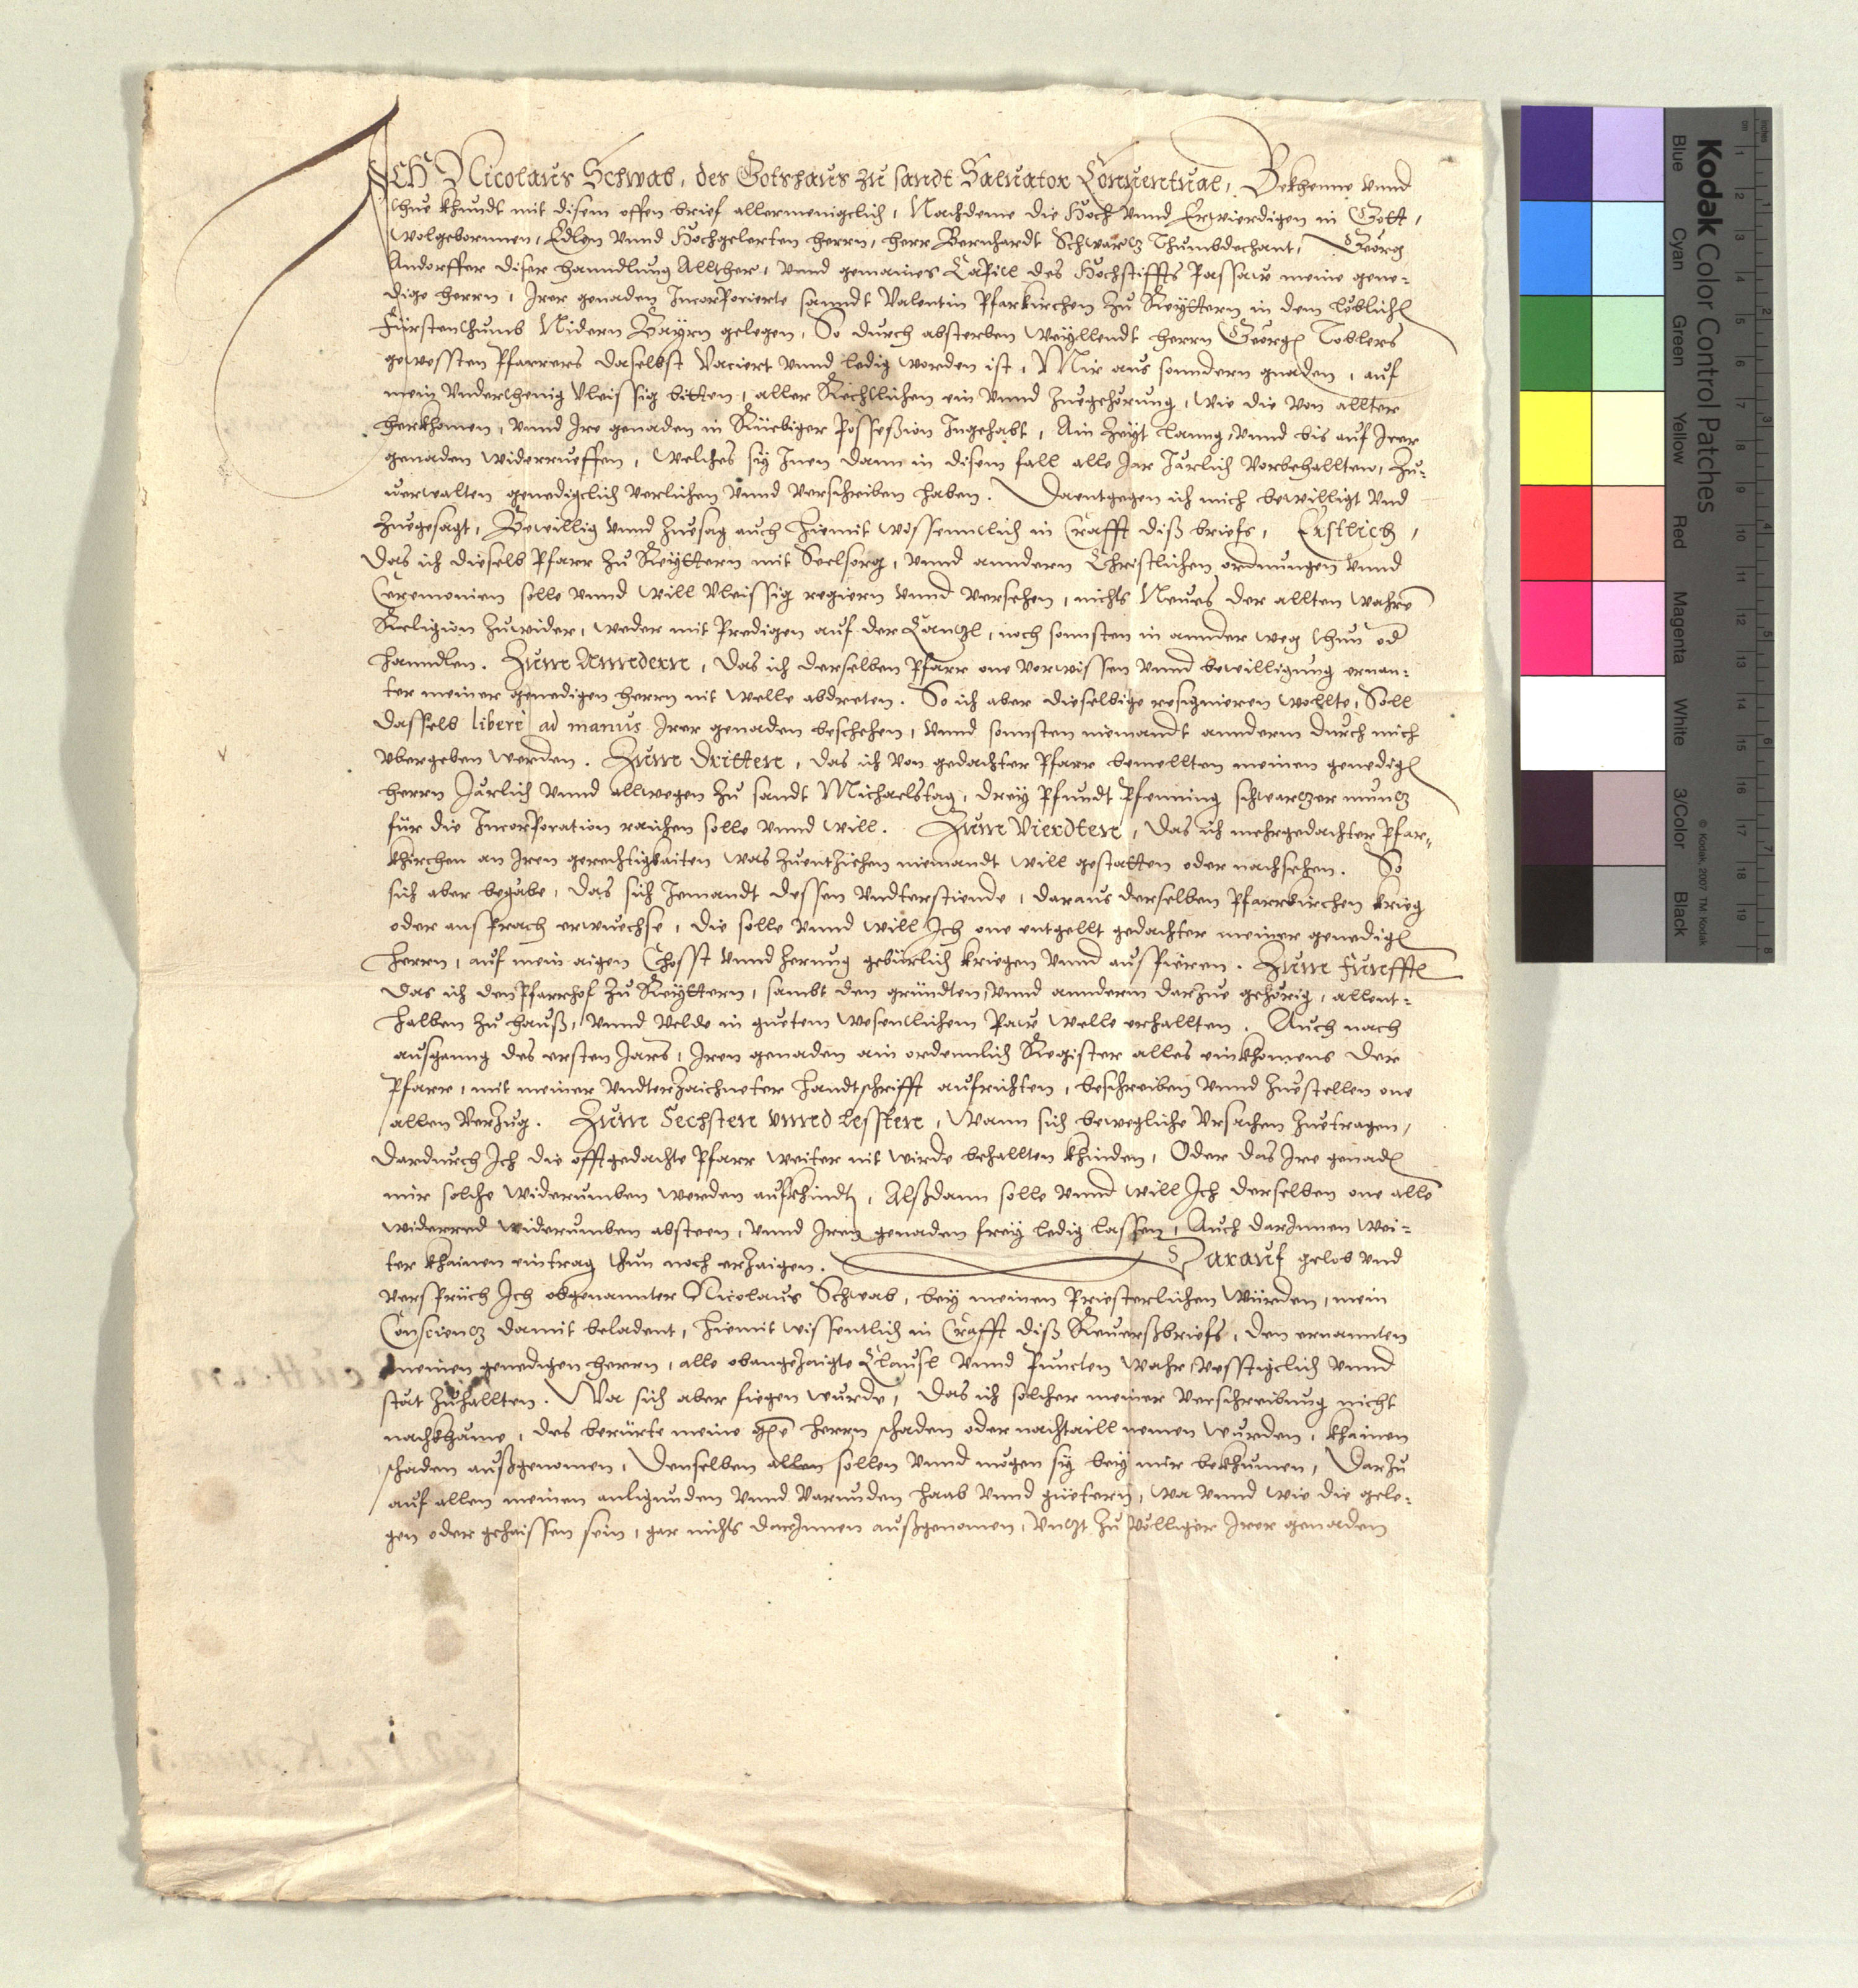 ICH Nicolaus Schwab, des Gotshaus zu sandt Saluator Conuentual, Bekhenne vnnd
thue khundt mit disem offen brief allermenigclich, Nachdeme die Hoch vnnd Erwierdigen in Gott,
Wolgebornnen, Edlen vnnd Hochgelerten herrn, herr Bernhardt Schwartz Thumbdechant, Georg
Andorffer diser hanndlung Allther, vnnd gemaines Capitl des Hochstiffts Passaw meine gene-
dige herrn, Irer genaden Incorporierte sanndt Valentin Pfarkirchen zu Reyttern in dem loblichen
Fürstenthumb Nidern Bayrn gelegen, So durch absterben weyllendt herrn Georgen Toblers
gewessten Pfarrers daselbst Vaciert vnnd ledig worden ist, Mir aus sonndern gnaden, auf
mein vnderthenig vleissig bitten, aller Rechtlichen ein vnnd zuegehörung, wie die von allter
herkhomen, vnnd Ire genaden in Rüebiger Possession Ingehabt, Ain Zeyt lanng, vnnd bis auf Irer
genaden widerrueffen, welches sy Inen dann in disem fall alle Jar Järlich vorbehallten, zu-
uerwalten genedigclich verlichen vnnd verschriben haben. Daentgegen ich mich bewilligt vnd
zuegesagt, Bewillig vnnd zuesag auch hiemit wissenntlich in Crafft diß briefs, Erstlich,
Das ich dieselb Pfarr zu Reyttern mit Seelsorg, vnnd anndern Christlichen ordnungen vnnd
Ceremonien solle vnnd will vleissig regiern vnnd versehen, nichts Neues der allten wahren
Religion zuwider, weder mit Predigen auf der Canntzl, noch sonnsten in annder weg thun od
hanndlen. Zum Anndern, Das ich derselben Pfarr one vorwissen vnnd bewilligung ernan-
ter meiner genedigen herrn nit welle abdreten. So ich aber dieselbige resignieren wollte, Soll
dasselb liberè ad manus Irer genaden beschehen, vnnd sonnsten niemandt annderm durch mich
vbergeben werden. Zum Dritten, Das ich von gedachter Pfarr bemellten meinen genedigen
herrn Järlich vnnd allwegen zu sandt Michaelstag, drey Pfundt Pfenning schwartzer muntz
für die Incorporation raichen solle vnnd will. Zum Vierdten, Das ich mehrgedachter Pfar-
khirchen an Iren gerechtigkaiten was zuentziehen niemandt will gestatten oder nachsehen. So
sich aber begäbe, Das sich Jemandt dessen vndterstiende, daraus derselben Pfarrkirchen krieg
oder ansprach erwuechse, die solle vnnd will Ich one entgellt gedachter meiner genedigen
herrn, auf mein aigen Chosst vnnd zerung gebürlich kriegen vnnd ausfüeren. Zum Funfften
Das ich den Pfarrhof zu Reyttern, sambt den gründten, vnnd annderm darzue gehörig, allent-
halben zu hauß, vnnd velde in guetem wesentlichem Paw welle erhallten. Auch nach
ausganng des ersten Jars, Iren genaden ain ordennlich Register alles einkhomens der
Pfarr, mit meiner vndterzaichneter handtschrifft aufrichten, beschreiben vnnd zuestellen one
allen verzug. Zum Sechsten vnnd lessten, Wann sich bewegliche vrsachen zuetragen,
dardurch Ich die offtgedachte Pfarr weiter nit wirde behallten khinden, Oder das Ire genaden
mir solche widerumben werden aufkhinden, Alßdann solle vnnd will Ich derselben one alle
widerred widerumben absteen, vnnd Iren genaden frey ledig lassen, Auch darInnen wei-
ter khainen eintrag thun noch erzaigen. Darauf gelob vnd
versprich Ich obgenannter Nicolaus Schwab, bey meinen Priesterlichen Würden, mein
Conscientz damit beladent, hiemit wissentlich in Crafft diß Reuerßbriefs, den ernannten
meinen genedigen herrn, alle obangezaigte Clausl vnnd Puncten wahr, vesstigclich vnnd
stät zuhallten. Wa sich aber fiegen wurde, Das ich solcher meiner verschreibung nicht
nachkhäme, des berürte meine herrn schaden oder nachtaill nemen wurden, khainen
schaden außgenomen, Denselben allen sollen vnnd mögen sy bey mir bekhumen, Darzu
auf allen meinen anligunden vnnd varunden haab vnnd güetern, wa vnnd wie die gele-
gen oder gehaissen sein, gar nichts darInnen außgenomen, vntzt zu völliger Irer genaden